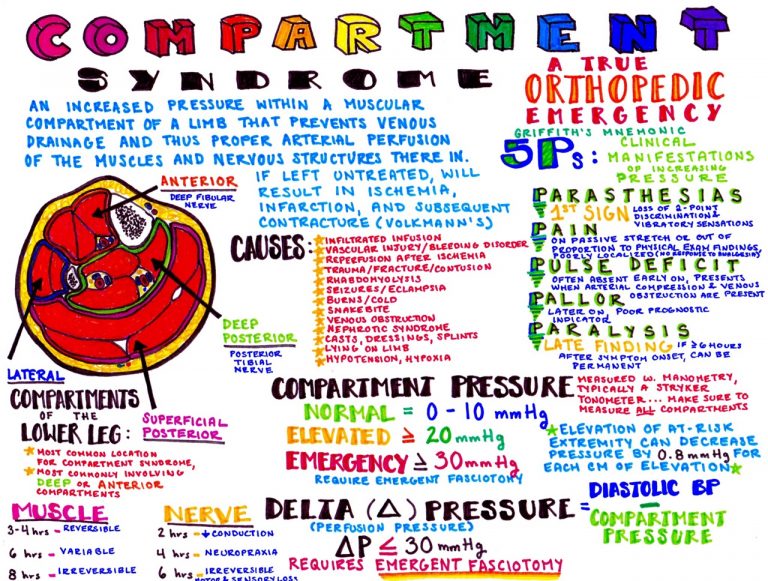 COMPARTMENT
SYNDROME
A TRUE
ORTHOPEDIC
EMERGENCY
AN INCREASED PRESSURE WITHIN A MUSCULAR
COMPARTMENT OF A LIMB THAT PREVENTS VENOUS
DRAINAGE AND THUS PROPER ARTERIAL PERFUSION
OF THE MUSCLES AND NERVOUS STRUCTURES THERE IN.
IF LEFT UNTREATED, WILL
RESULT IN ISCHEMIA,
INFARCTION, AND SUBSEQUENT
CONTRACTURE (VOLKMANN'S)
GRIFFITH'S MNEMONIC
5Ps:
CLINICAL
MANIFESTATIONS
OF INCREASING
PRESSURE
PARASTHESIAS
1ST SIGN LOSS OF 2-POINT
DISCRIMINATION &
VIBRATORY SENSATIONS
PAIN
ON PASSIVE STRETCH OR OUT OF
PROPORTION TO PHYSICAL EXAM FINDINGS,
POORLY LOCALIZED (NO RESPONSE TO ANALGESIA)
PULSE DEFICIT
OFTEN ABSENT EARLY ON, PRESENTS
WHEN ARTERIAL COMPRESSION & VENOUS
OBSTRUCTION ARE PRESENT
PALLOR
LATER ON, POOR PROGNOSTIC
INDICATOR
PARALYSIS
LATE FINDING IF ≥ 6 HOURS
AFTER SYMPTOM ONSET, CAN BE
PERMANENT
ANTERIOR
DEEP FIBULAR
NERVE
DEEP
POSTERIOR
POSTERIOR
TIBIAL
NERVE
LATERAL
SUPERFICIAL
POSTERIOR
COMPARTMENTS
OF THE
LOWER LEG:
MOST COMMON LOCATION
FOR COMPARTMENT SYNDROME,
MOST COMMONLY INVOLVING
DEEP OR ANTERIOR
COMPARTMENTS
CAUSES:
INFILTRATED INFUSION
VASCULAR INJURY/BLEEDING DISORDER
REPERFUSION AFTER ISCHEMIA
TRAUMA/FRACTURE/CONTUSION
RHABDOMYOLYSIS
SEIZURES/ECLAMPSIA
BURNS/COLD
SNAKEBITE
VENOUS OBSTRUCTION
NEPHROTIC SYNDROME
CASTS, DRESSINGS, SPLINTS
LYING ON LIMB
HYPOTENSION, HYPOXIA
COMPARTMENT PRESSURE
NORMAL = 0-10 mmHg
ELEVATED ≥ 20 mmHg
EMERGENCY ≥ 30 mmHg
REQUIRE EMERGENT FASCIOTOMY
MEASURED W. MANOMETRY,
TYPICALLY A STRYKER
TONOMETER... MAKE SURE TO
MEASURE ALL COMPARTMENTS
ELEVATION OF AT-RISK
EXTREMITY CAN DECREASE
PRESSURE BY 0.8 mmHg FOR
EACH CM OF ELEVATION
MUSCLE
3-4 hrs - REVERSIBLE
6 hrs - VARIABLE
8 hrs - IRREVERSIBLE
NERVE
2 hrs - ↓ CONDUCTION
4 hrs - NEUROPRAXIA
6 hrs - IRREVERSIBLE
MOTOR & SENSORY LOSS
DELTA (Δ) PRESSURE =
(PERFUSION PRESSURE)
DIASTOLIC BP
-
COMPARTMENT
PRESSURE
ΔP ≤ 30 mmHg
REQUIRES EMERGENT FASCIOTOMY